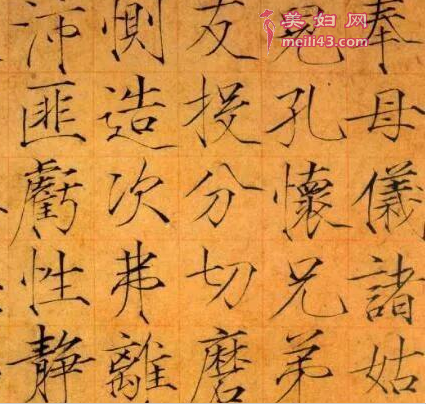 奉母儀諸姑
兒孔懷兄弟
友投分切磨
惻造次弗離
沛匪虧性靜
美妇网
meili43.com